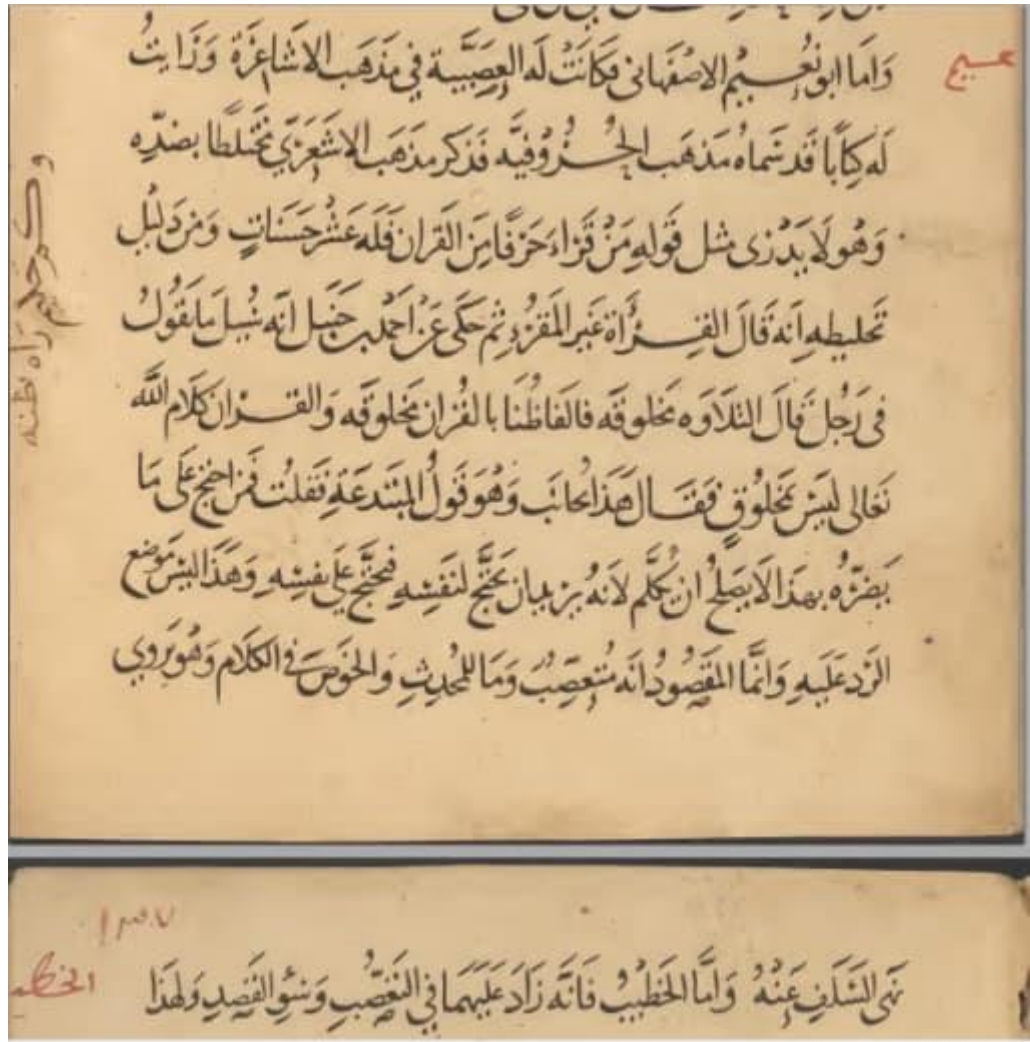 واما ابو نعيم الاصفهاني فكانت له العصبية في مذهب الاشاعرة ورايت
له كتابا قد سماه مذهب الحروفيه فذكر مذهب الاشعري مختلطا بضده
وهو لا يدري مثل قوله من قراء حرفا من القران فله عشر حسنات ومن دليل
تخليطه انه قال القراة غير المقرو ثم حكى عن احمد بن حنبل انه سيل ما يقول
في رجل قال التلاوه مخلوقه فالفاظنا بالقران مخلوقه والقران كلام الله
تعالى ليس بمخلوق فقال هذا يجانب وهو قول المبتدعة فقلت فمن احتج على ما
يضره بهذا لا يصلح ان يكلم لانه يريد ان يحتج لنفسه فيحتج على نفسه وهذا ليس موضع
الرد عليه وانما المقصود انه متعصب وما للمحدث والخوض في الكلام وهو يروي
١٣٧
نهي السلف عنه واما الخطيب فانه زاد عليهما في التعصب وسو القصد ولهذا